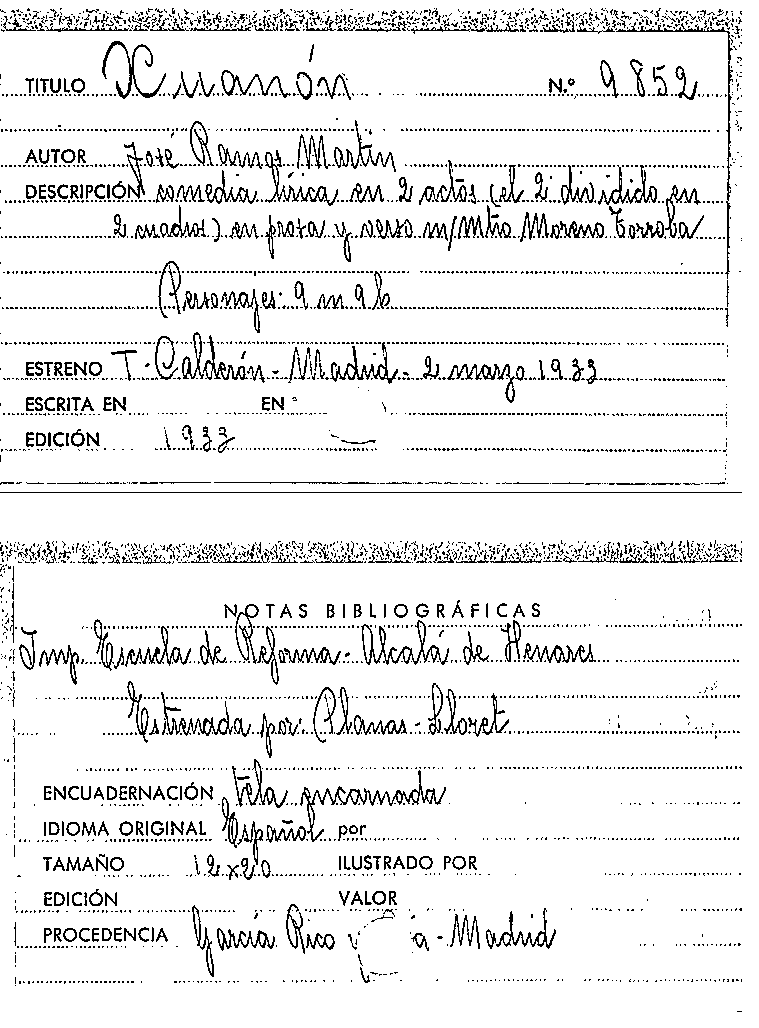 TITULO Xuanón N.º 9852
AUTOR José Ramos Martín
DESCRIPCIÓN comedia lírica en 2 actos (el 2º dividido en
2 cuadros) en prosa y verso m/Mtro Moreno Torroba
Personajes: 9 m 9 h
ESTRENO T. Calderón - Madrid - 2 marzo 1933
ESCRITA EN EN
EDICIÓN 1933
NOTAS BIBLIOGRÁFICAS
Imp. Escuela de Reforma - Alcalá de Henares
Estrenada por: Planas - Lloret
ENCUADERNACIÓN tela encarnada
IDIOMA ORIGINAL Español por
TAMAÑO 12x20 ILUSTRADO POR
EDICIÓN VALOR
PROCEDENCIA García Rico y - Madrid